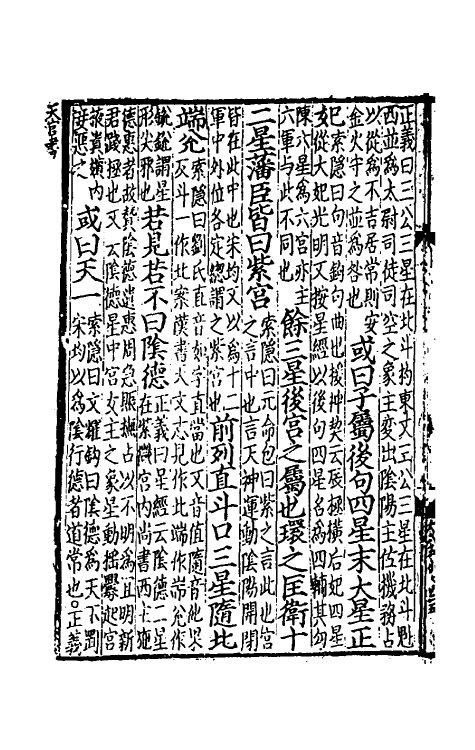 正義曰三公三星在北斗杓東又三公三星在北斗魁
西並為太尉司徒司空之象主變出陰陽主佐機務占
以徙為不吉居常則安
金火守之並為咎也
或曰子屬後句四星末大星正
妃
索隱曰句音鉤句曲也援神契云辰極橫后妃四星
從大妃光明又按星經以後句四星名為四輔其句
陳六星為六宮亦主
六軍與此不同也
餘三星後宮之屬也環之匡衛十
二星藩臣皆曰紫宮
索隱曰元命包曰紫之言此也宮
之言中也言天神運動陰陽開閉
皆在此中也宋均又以為十二
軍中外位各定總謂之紫宮也
前列直斗口三星隨北
端兌
索隱曰劉氏直音如字直當也又音值隨音他果
反斗一作北案漢書天文志作北端作耑兌作
銳銳謂星
形尖邪也
若見若不曰陰德
正義曰星經云陰德二星
在紫微宮內尚書西主施
德惠者故贊陰德遺惠周急賑撫占以不明為宜明新
君踐極也又云陰德星中宮女主之象星動搖釁起宮
掖貴嬪內
妾惡之
或曰天一
索隱曰文耀鉤曰陰德為天下綱
宋均以為陰行德者道常也○正義
天官書